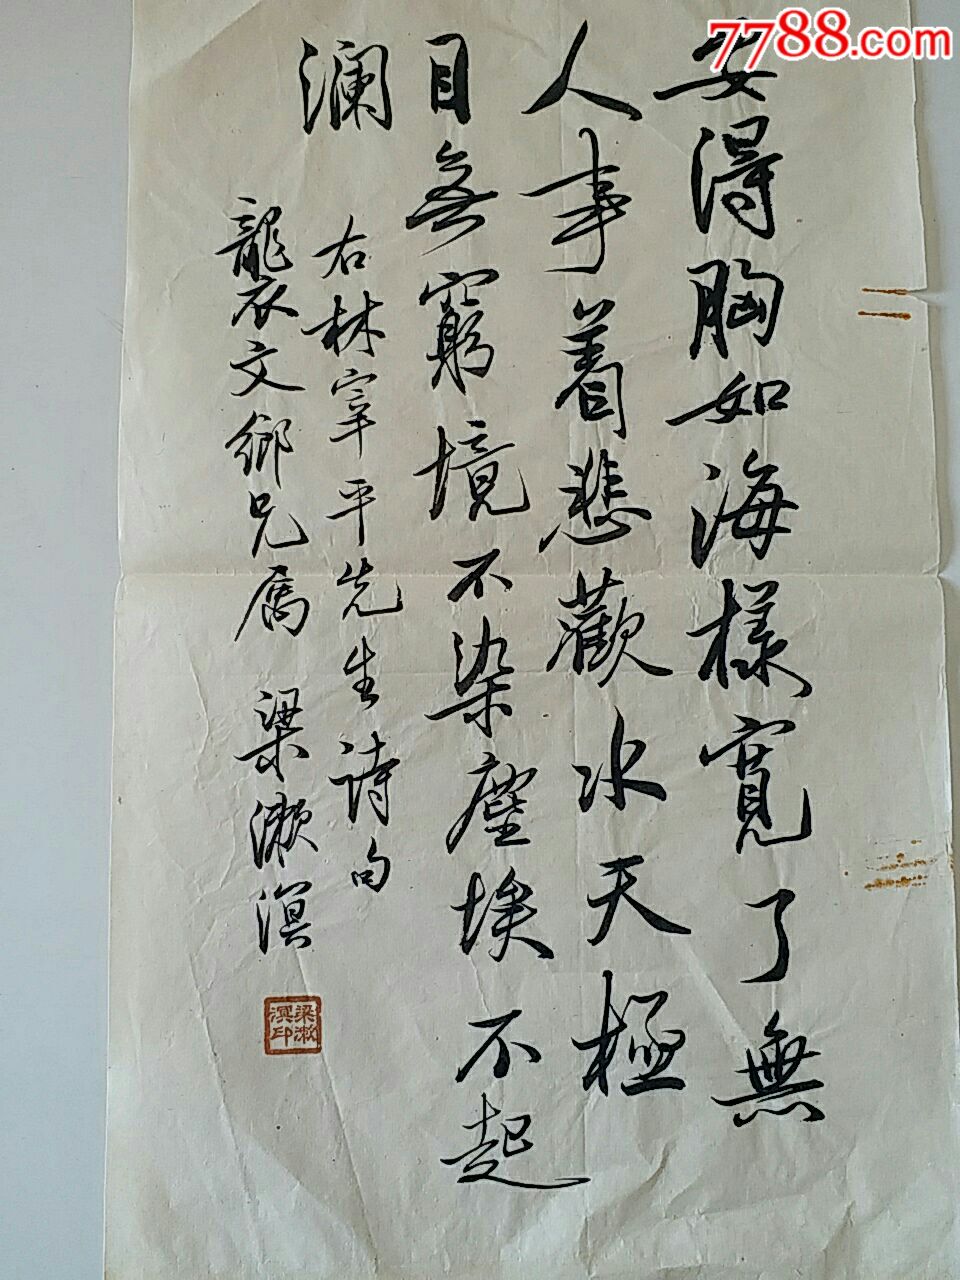 7788.com
安得胸如海樣寬了無
人事着悲歡水天極
目無窮境不染塵埃不起
澜
右林宰平先生詩句
襲文鄉兄属 梁漱溟
梁漱溟印